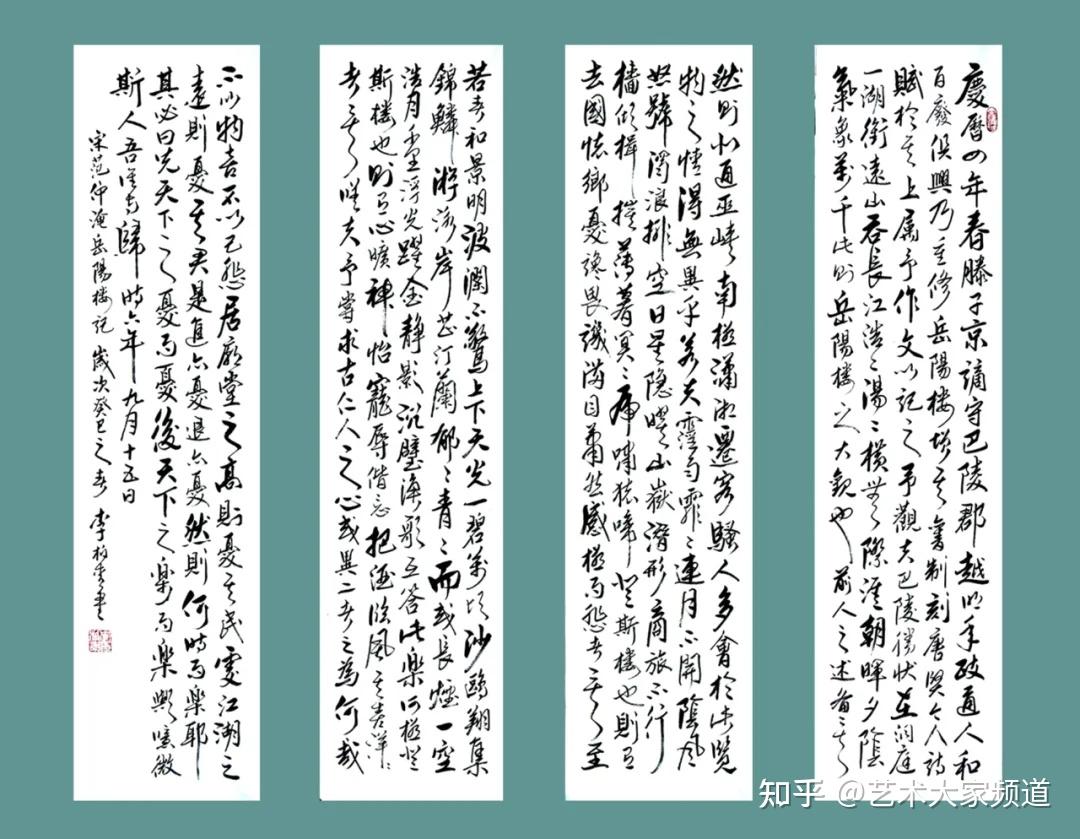 慶曆四年春滕子京謫守巴陵郡越明年政通人和
百廢俱興乃重修岳陽楼增其舊制刻唐賢今人詩
賦於其上属予作文以記之予觀夫巴陵勝狀在洞庭
一湖銜遠山吞長江浩〻湯〻橫無際涯朝暉夕陰
氣象萬千此則岳陽楼之大觀也前人之述備矣
然則北通巫峽南極瀟湘遷客騷人多會於此覽
物之情得無異乎若夫霪雨霏〻連月不開陰風
怒號濁浪排空日星隱曜山嶽潛形商旅不行
檣傾楫摧薄暮冥〻虎嘯猿啼登斯楼也則有
去國懷鄉憂讒畏譏滿目蕭然感極而悲者矣至
若春和景明波瀾不驚上下天光一碧萬頃沙鷗翔集
錦鱗游泳岸芷汀蘭郁〻青〻而或長煙一空
浩月千里浮光躍金静影沉璧漁歌互答此樂何極登
斯楼也則有心曠神怡寵辱偕忘把酒臨風其喜洋〻
者矣嗟夫予嘗求古仁人之心或異二者之為何哉
不以物喜不以己悲居廟堂之高則憂其民處江湖之
遠則憂其君是進亦憂退亦憂然則何時而樂耶
其必曰先天下之憂而憂後天下之樂而樂歟噫微
斯人吾誰與歸時六年九月十五日
宋范仲淹岳陽楼記 歲次癸巳之春 李柏書
知乎 @艺术大家频道